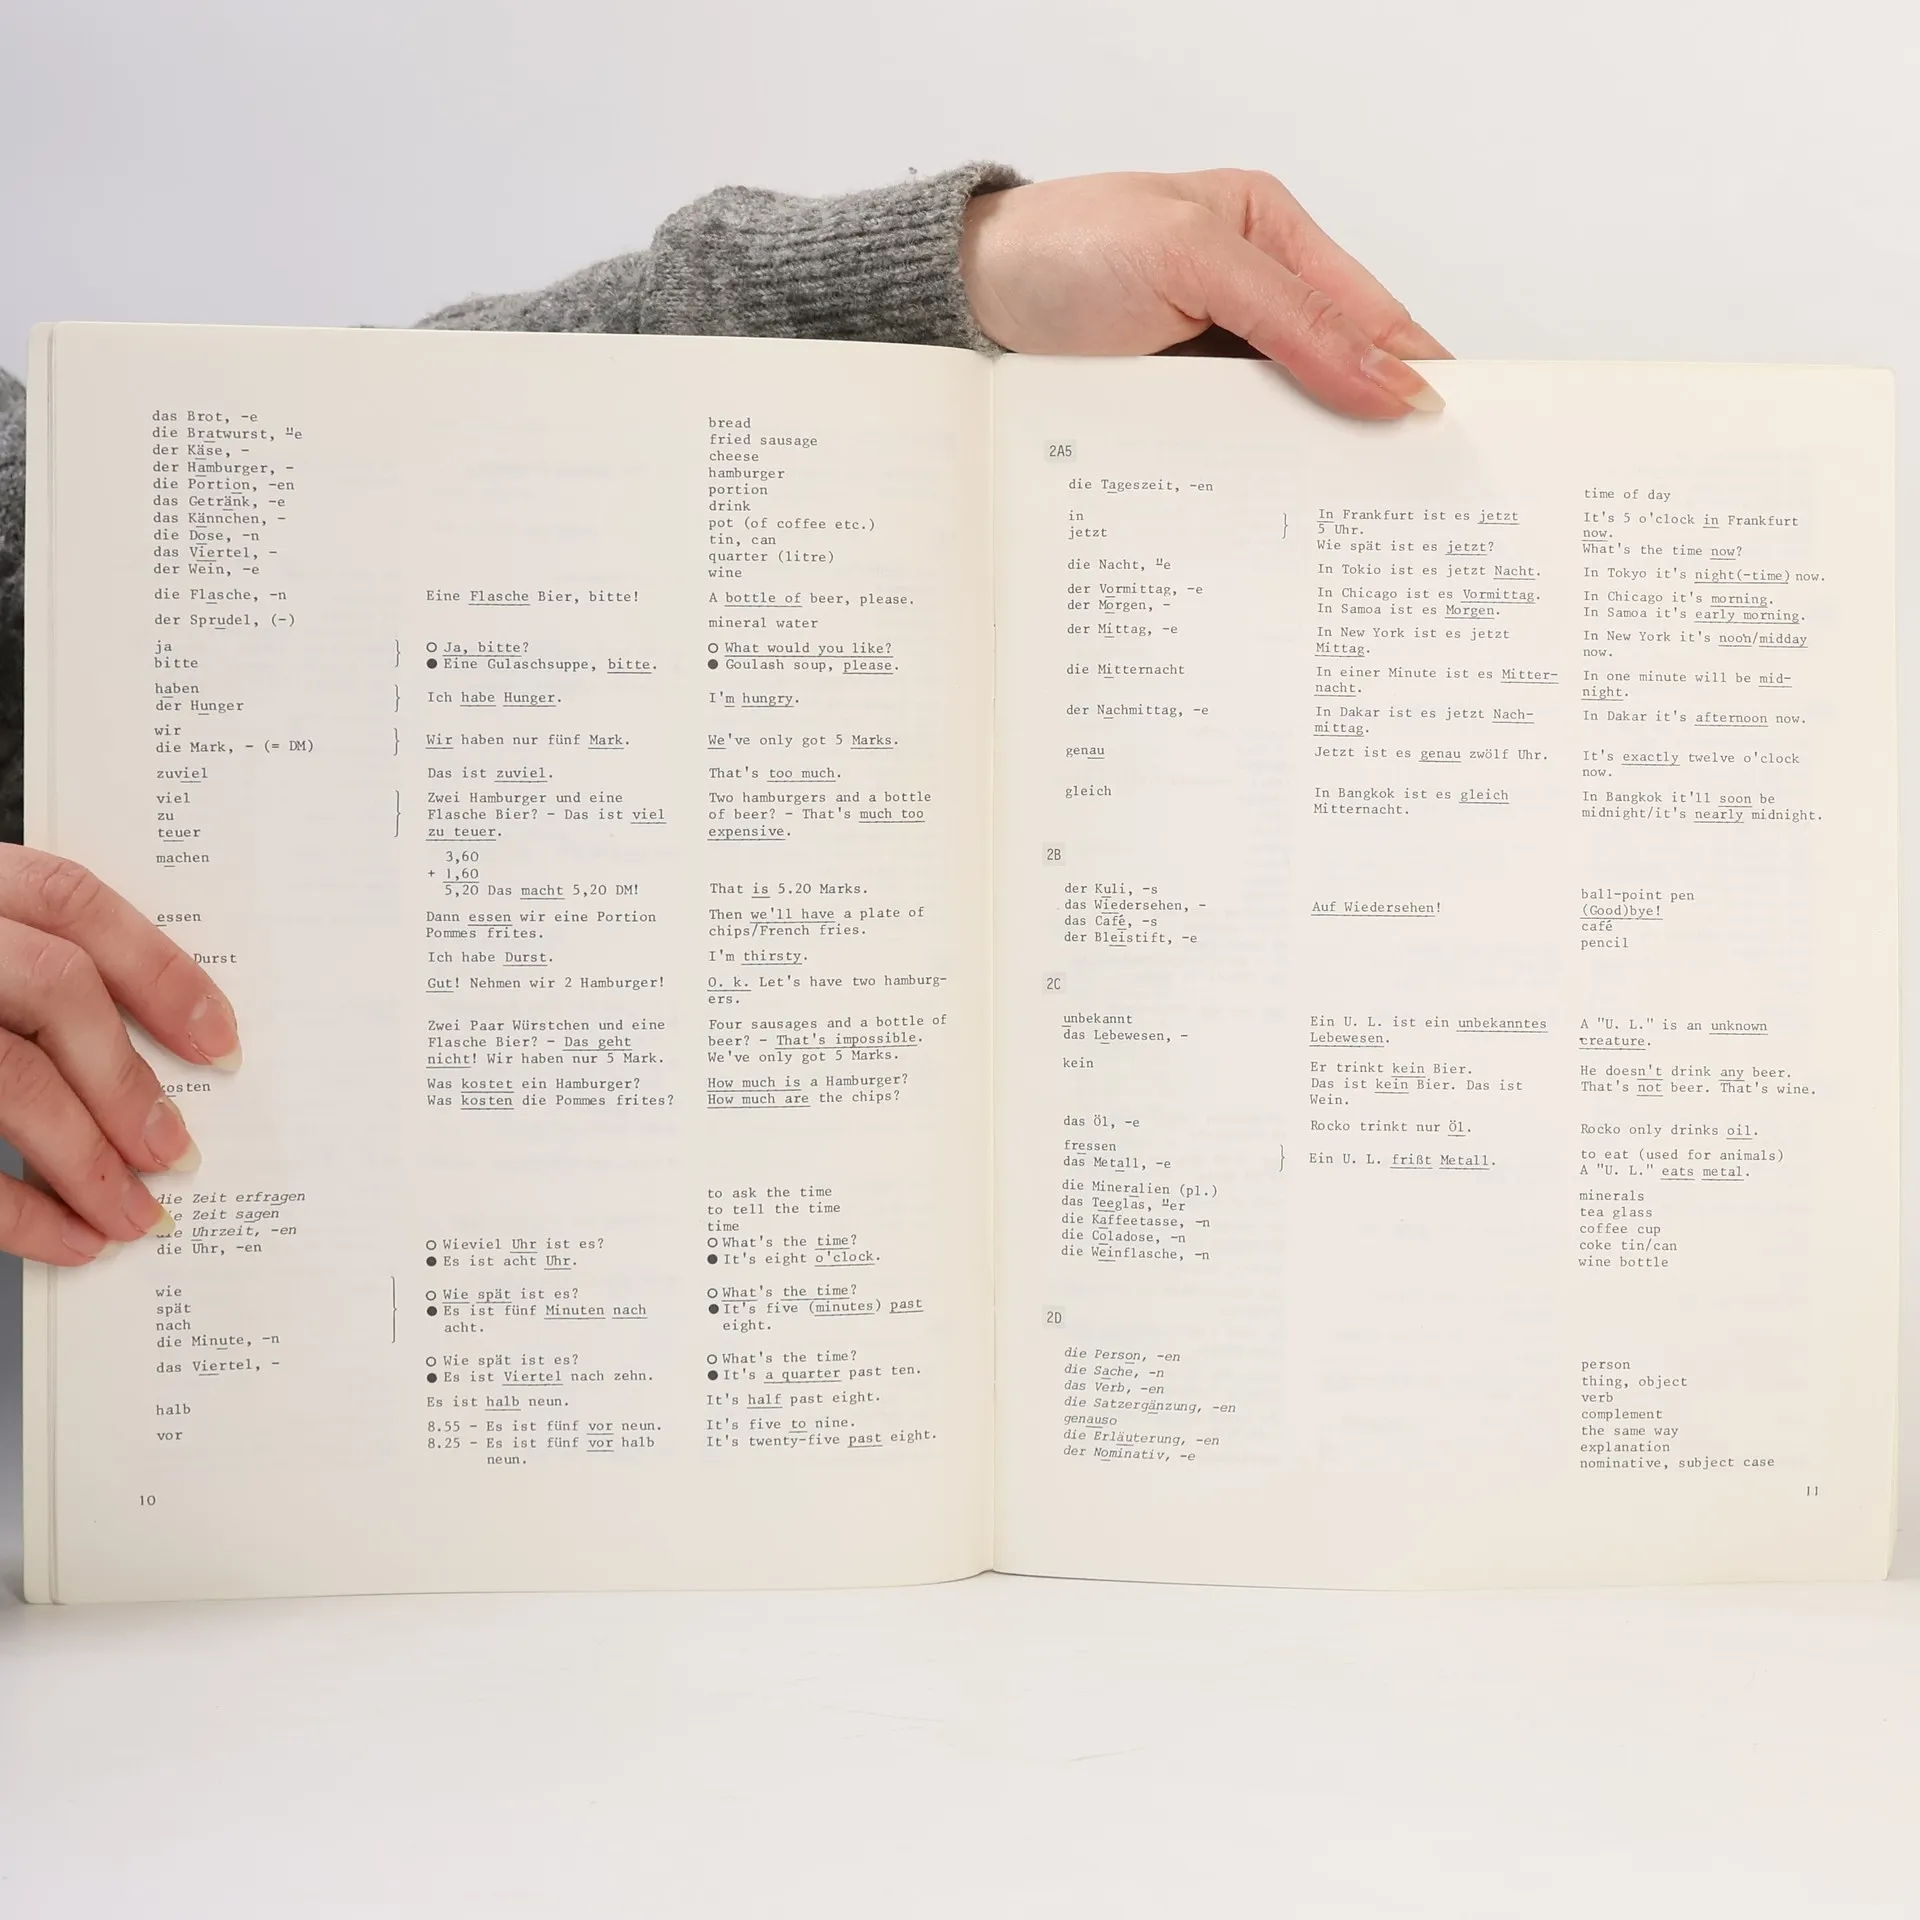 das Brot, -e
die Bratwurst, ⸚e
der Käse, -
der Hamburger, -
die Portion, -en
das Getränk, -e
das Kännchen, -
die Dose, -n
das Viertel, -
der Wein, -e
bread
fried sausage
cheese
hamburger
portion
drink
pot (of coffee etc.)
tin, can
quarter (litre)
wine
die Flasche, -n Eine Flasche Bier, bitte! A bottle of beer, please.
der Sprudel, (-) mineral water
ja } O Ja, bitte? O What would you like?
bitte ● Eine Gulaschsuppe, bitte. ● Goulash soup, please.
haben
der Hunger } Ich habe Hunger. I'm hungry.
wir
die Mark, - (= DM) } Wir haben nur fünf Mark. We've only got 5 Marks.
zuviel Das ist zuviel. That's too much.
viel } Zwei Hamburger und eine Two hamburgers and a bottle
zu Flasche Bier? - Das ist viel of beer? - That's much too
teuer zu teuer. expensive.
machen 3,60
+ 1,60
5,20 Das macht 5,20 DM! That is 5.20 Marks.
essen Dann essen wir eine Portion Then we'll have a plate of
Pommes frites. chips/French fries.
Durst Ich habe Durst. I'm thirsty.
Gut! Nehmen wir 2 Hamburger! O. k. Let's have two hamburg-
ers.
Zwei Paar Würstchen und eine Four sausages and a bottle of
Flasche Bier? - Das geht beer? - That's impossible.
nicht! Wir haben nur 5 Mark. We've only got 5 Marks.
kosten Was kostet ein Hamburger? How much is a Hamburger?
Was kosten die Pommes frites? How much are the chips?
die Zeit erfragen to ask the time
die Zeit sagen to tell the time
die Uhrzeit, -en time
die Uhr, -en O Wieviel Uhr ist es? O What's the time?
● Es ist acht Uhr. ● It's eight o'clock.
wie } O Wie spät ist es? O What's the time?
spät ● Es ist fünf Minuten nach ● It's five (minutes) past
nach acht. eight.
die Minute, -n
das Viertel, - O Wie spät ist es? O What's the time?
● Es ist Viertel nach zehn. ● It's a quarter past ten.
halb Es ist halb neun. It's half past eight.
vor 8.55 - Es ist fünf vor neun. It's five to nine.
8.25 - Es ist fünf vor halb It's twenty-five past eight.
neun.
10
2A5
die Tageszeit, -en time of day
in } In Frankfurt ist es jetzt It's 5 o'clock in Frankfurt
jetzt 5 Uhr. now.
Wie spät ist es jetzt? What's the time now?
die Nacht, ⸚e In Tokio ist es jetzt Nacht. In Tokyo it's night(-time) now.
der Vormittag, -e In Chicago ist es Vormittag. In Chicago it's morning.
der Morgen, - In Samoa ist es Morgen. In Samoa it's early morning.
der Mittag, -e In New York ist es jetzt In New York it's noon/midday
Mittag. now.
die Mitternacht In einer Minute ist es Mitter- In one minute will be mid-
nacht. night.
der Nachmittag, -e In Dakar ist es jetzt Nach- In Dakar it's afternoon now.
mittag.
genau Jetzt ist es genau zwölf Uhr. It's exactly twelve o'clock
now.
gleich In Bangkok ist es gleich In Bangkok it'll soon be
Mitternacht. midnight/it's nearly midnight.
2B
der Kuli, -s ball-point pen
das Wiedersehen, - Auf Wiedersehen! (Good)bye!
das Café, -s café
der Bleistift, -e pencil
2C
unbekannt Ein U. L. ist ein unbekanntes A "U. L." is an unknown
das Lebewesen, - Lebewesen. creature.
kein Er trinkt kein Bier. He doesn't drink any beer.
Das ist kein Bier. Das ist That's not beer. That's wine.
Wein.
das Öl, -e Rocko trinkt nur Öl. Rocko only drinks oil.
fressen } to eat (used for animals)
das Metall, -e Ein U. L. frißt Metall. A "U. L." eats metal.
die Mineralien (pl.) minerals
das Teeglas, ⸚er tea glass
die Kaffeetasse, -n coffee cup
die Coladose, -n coke tin/can
die Weinflasche, -n wine bottle
2D
die Person, -en person
die Sache, -n thing, object
das Verb, -en verb
die Satzergänzung, -en complement
genauso the same way
die Erläuterung, -en explanation
der Nominativ, -e nominative, subject case
11